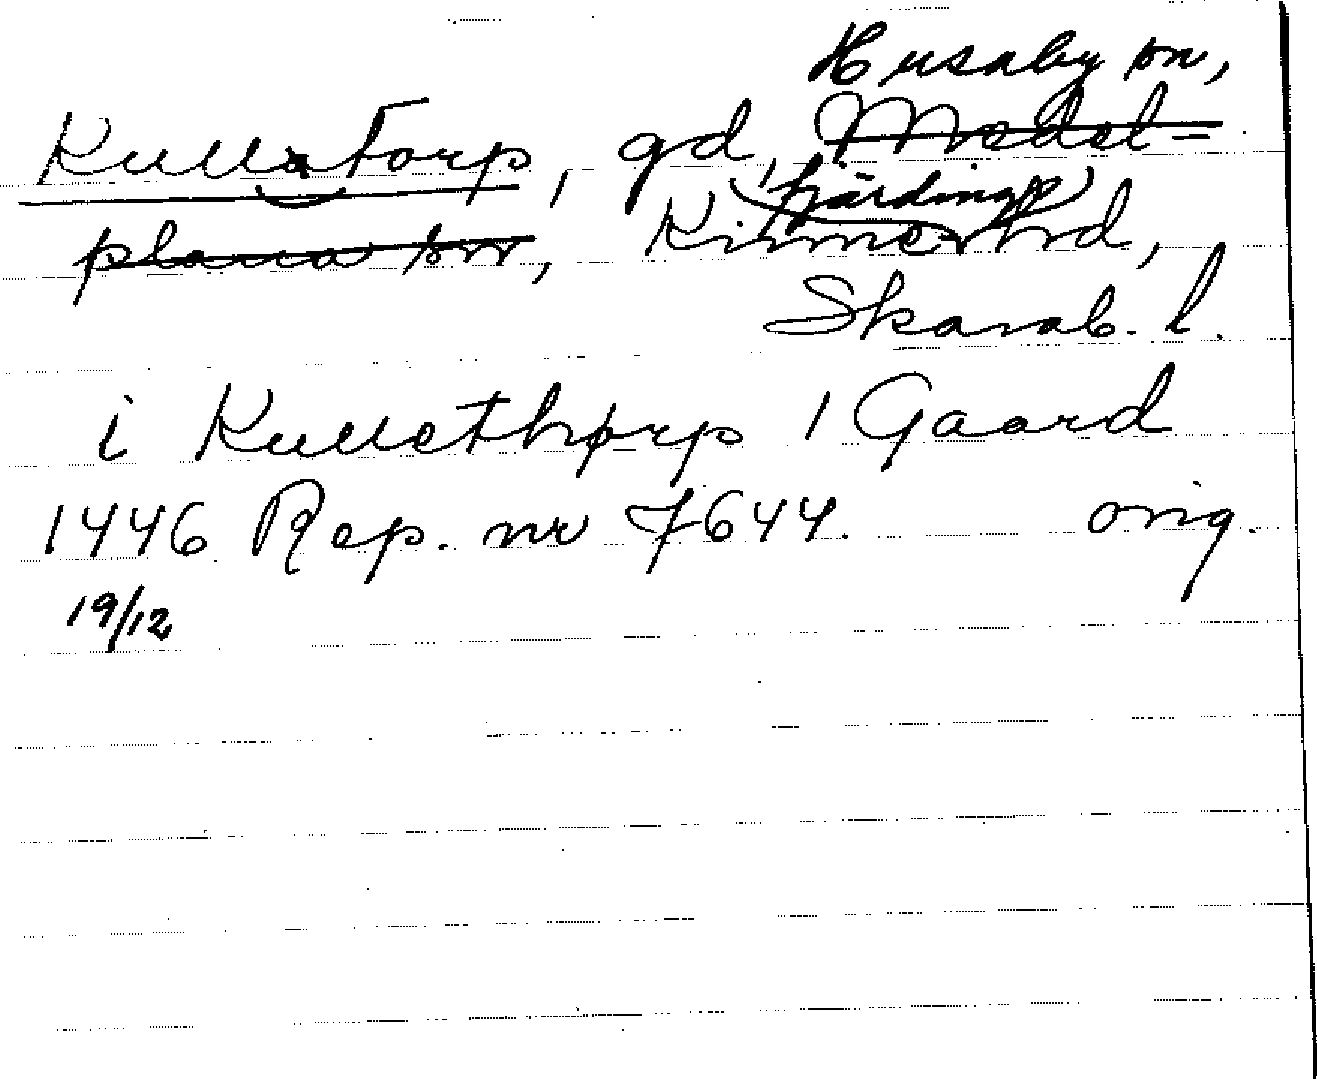 Husaby sn,
Kullatorp, gd, Medel-
fjärding
plana sn, Kinne hd,
Skarab. l.
i Kullethorp 1 Gaard
1446 Rep. nr 7644. orig.
19/12